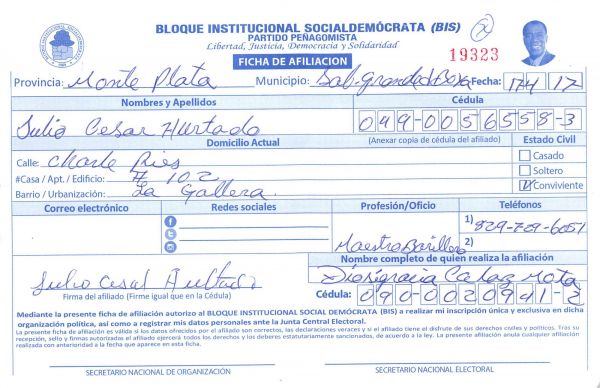 BLOQUE INSTITUCIONAL SOCIALDEMÓCRATA (BIS)
PARTIDO PEÑAGOMISTA
Libertad, Justicia, Democracia y Solidaridad
19323
FICHA DE AFILIACION
Provincia: Monte Plata Municipio: Sab. Grande d Boya Fecha: 17 4 17
Nombres y Apellidos Cédula
Julio Cesar Hurtado 049-0056558-3
Domicilio Actual (Anexar copia de cédula del afiliado) Estado Civil
Calle: Charle Pies Casado
#Casa / Apt. / Edificio: # 102 Soltero
Barrio / Urbanización: La Gallera Conviviente
Correo electrónico Redes sociales Profesión/Oficio Teléfonos
1) 829-729-6051
Maestro Barillero 2)
Nombre completo de quien realiza la afiliación
Julio Cesar Hurtado Diosgracia Mota
Firma del afiliado (Firme igual que en la Cédula) Cédula: 090-0020941-2
Mediante la presente ficha de afiliación autorizo al BLOQUE INSTITUCIONAL SOCIAL DEMÓCRATA (BIS) a realizar mi inscripción única y exclusiva en dicha
organización política, así como a registrar mis datos personales ante la Junta Central Electoral.
La presente ficha de afiliación es válida si los datos ofrecidos por el afiliado son correctos, las declaraciones veraces y si el afiliado tiene el disfrute de sus derechos civiles y políticos. Tras su
recepción, sello y firmas autorizadas el afiliado ejercerá todos los derechos y los deberes estatutariamente sancionados, de acuerdo a la ley. La presente afiliación anula cualquier afiliación
realizada con anterioridad a la fecha que aparece en esta ficha.
SECRETARIO NACIONAL DE ORGANIZACIÓN SECRETARIO NACIONAL ELECTORAL